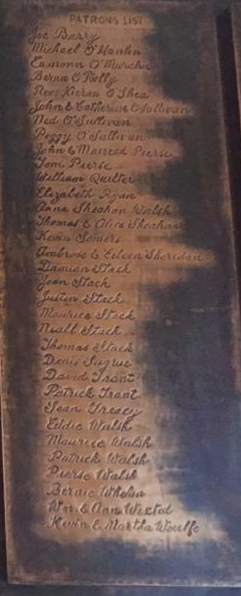 PATRONS LIST
Joe Barry
Michael O'Hanlon
Eamonn O'Murchu
Bernie O'Reilly
Rev. Kieran O'Shea
John & Catherine O'Sullivan
Ned O'Sullivan
Peggy O'Sullivan
John & Mairead Pierse
Tom Pierse
William Quilter
Elizabeth Ryan
Anna Sheahan Walsh
Thomas & Alice Sheehan
Kevin Somers
Ambrose & Eileen Sheridan
Damian Stack
Jean Stack
Justin Stack
Maurice Stack
Niall Stack
Thomas Stack
Denis Sugrue
David Trant
Patrick Trant
Jean Tracey
Eddie Walsh
Maurice Walsh
Patrick Walsh
Pierse Walsh
Bernie Whelan
Wm. & Ann
Kevin & Martha Woulfe